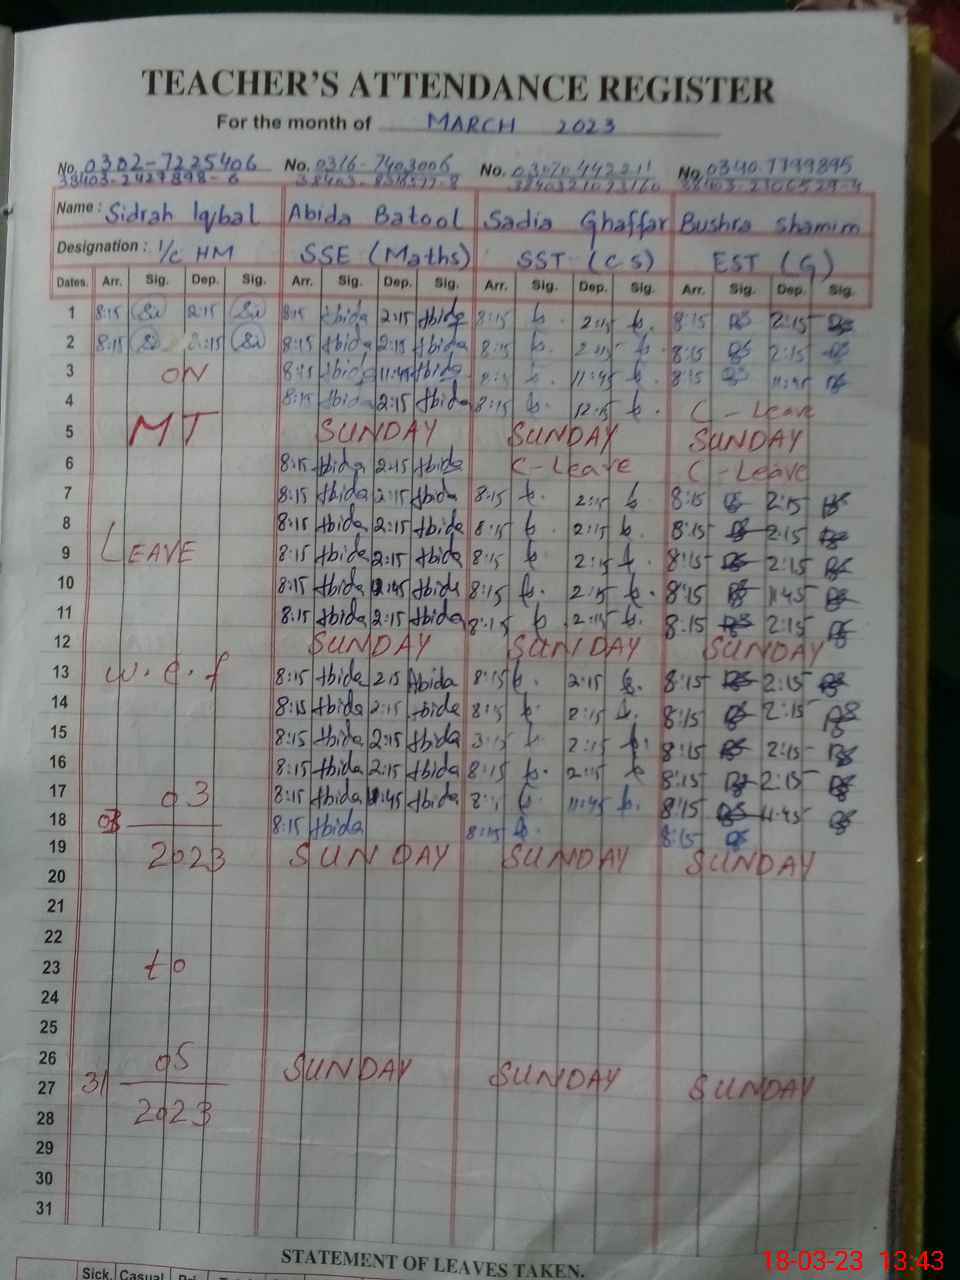 TEACHER'S ATTENDANCE REGISTER
For the month of MARCH 2023
No. 0302-7225406 No. 0316-7403006 No. No. 0340.7799895
Name : Sidrah Iqbal Abida Batool Sadia Ghaffar Bushra Shamim
Designation : I/c HM SSE (Maths) SST (CS) EST (G)
Dates. Arr. Sig. Dep. Sig. Arr. Sig. Dep. Sig. Arr. Sig. Dep. Sig. Arr. Sig. Dep. Sig.
1 8:15 2:15 8:15 Abida 2:15 Abida 8:15 2:15 8:15 2:15
2 8:15 2:15 8:15 Abida 2:15 Abida 8:15 2:15 8:15 2:15
3 ON 8:15 Abida 11:45 Abida 8:15 11:45 8:15 11:45
4 8:15 Abida 2:15 Abida 8:15 12:15 C-Leave
5 MT SUNDAY SUNDAY SUNDAY
6 8:15 Abida 2:15 Abida C-Leave C-Leave
7 8:15 Abida 2:15 Abida 8:15 2:15 8:15 2:15
8 8:15 Abida 2:15 Abida 8:15 2:15 8:15 2:15
9 LEAVE 8:15 Abida 2:15 Abida 8:15 2:15 8:15 2:15
10 8:15 Abida Abida 8:15 2:15 8:15 11:45
11 8:15 Abida 2:15 Abida 8:15 2:15 8:15 2:15
12 SUNDAY SUNDAY SUNDAY
13 w.e.f 8:15 Abida 2:15 Abida 8:15 2:15 8:15 2:15
14 8:15 Abida 2:15 Abida 8:15 2:15 8:15 2:15
15 8:15 Abida 2:15 Abida 2:15 8:15 2:15
16 8:15 Abida 2:15 Abida 8:15 2:15 8:15 2:15
17 03 8:15 Abida 11:45 Abida 11:45 8:15 11:45
18 8:15 Abida 8:15 8:15
19 2023 SUNDAY SUNDAY SUNDAY
20
21
22
23 to
24
25
26 05 SUNDAY SUNDAY SUNDAY
27 31
28 2023
29
30
31
STATEMENT OF LEAVES TAKEN.
Sick. Casual
18-03-23 13:43